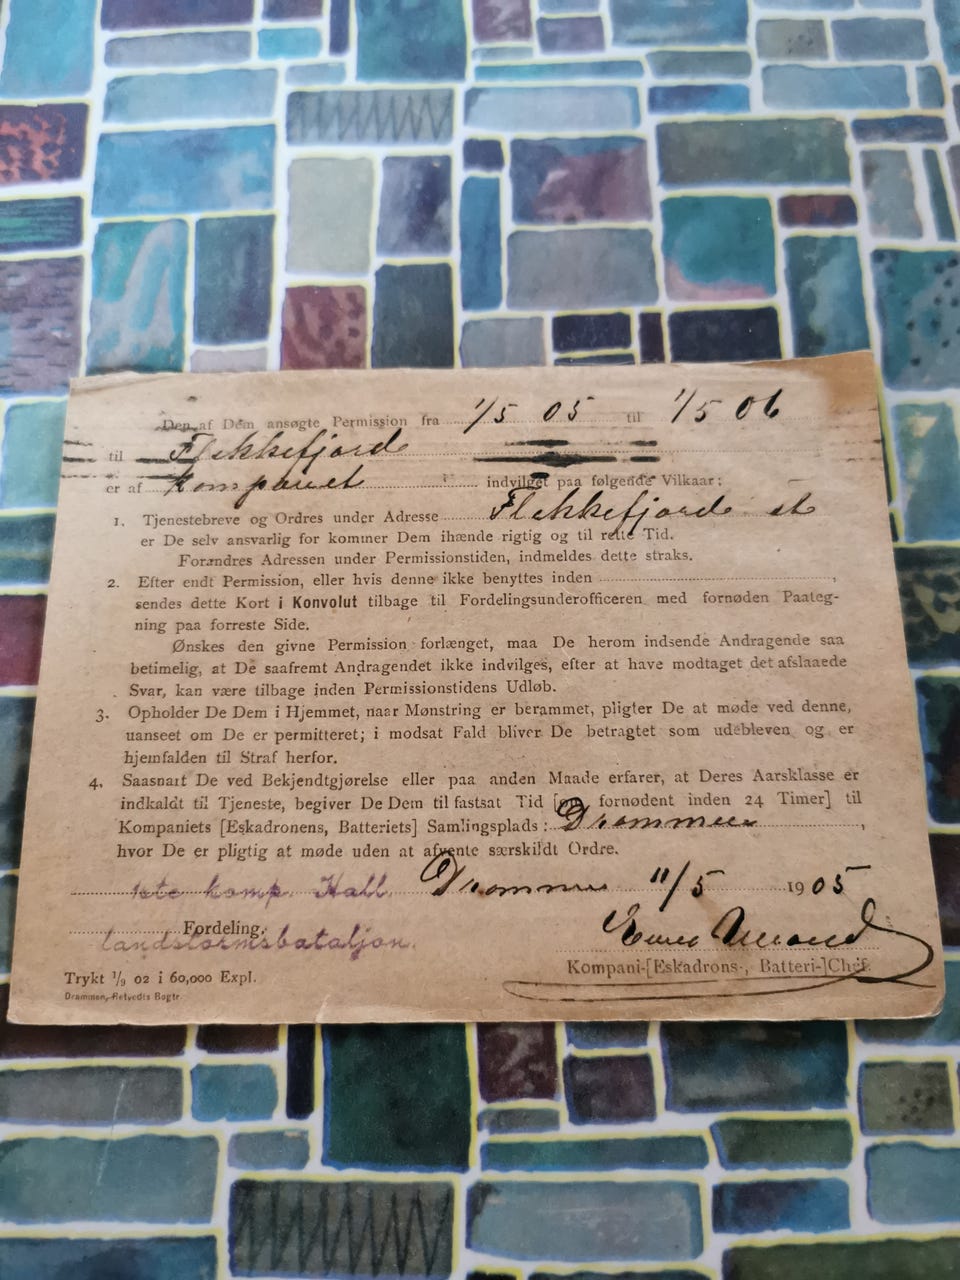 Den af Dem ansøgte Permission fra 1/5 05 til 1/5 06
til Flekkefjord
er af kompaniet indvilget paa følgende Vilkaar:
1. Tjenestebreve og Ordres under Adresse Flekkefjord st
er De selv ansvarlig for kommer Dem ihænde rigtig og til rette Tid.
Forandres Adressen under Permissionstiden, indmeldes dette straks.
2. Efter endt Permission, eller hvis denne ikke benyttes inden ,
sendes dette Kort i Konvolut tilbage til Fordelingsunderofficeren med fornøden Paateg-
ning paa forreste Side.
Ønskes den givne Permission forlænget, maa De herom indsende Andragende saa
betimelig, at De saafremt Andragendet ikke indvilges, efter at have modtaget det afslaaede
Svar, kan være tilbage inden Permissionstidens Udløb.
3. Opholder De Dem i Hjemmet, naar Mønstring er berammet, pligter De at møde ved denne,
uanseet om De er permitteret; i modsat Fald bliver De betragtet som udebleven og er
hjemfalden til Straf herfor.
4. Saasnart De ved Bekjendtgjørelse eller paa anden Maade erfarer, at Deres Aarsklasse er
indkaldt til Tjeneste, begiver De Dem til fastsat Tid [om fornødent inden 24 Timer] til
Kompaniets [Eskadronens, Batteriets] Samlingsplads: Drammen,
hvor De er pligtig at møde uden at afvente særskildt Ordre.
1ste komp. Hall. Drammen 11/5 1905
Fordeling.
landstormsbataljon.
Kompani-[Eskadrons-, Batteri-]Chef.
Trykt 1/9 02 i 60,000 Expl.
Drammen, Relvedts Bogtr.